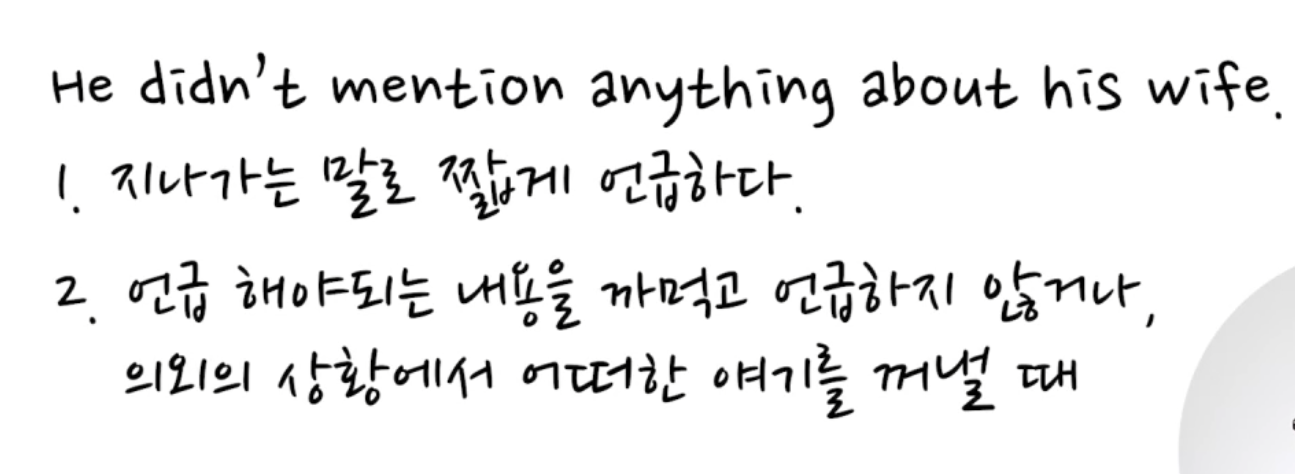 He didn't mention anything about his wife.
1. 지나가는 말로 짧게 언급하다.
2. 언급 해야되는 내용을 까먹고 언급하지 않거나,
의외의 상황에서 어떠한 얘기를 꺼낼 때